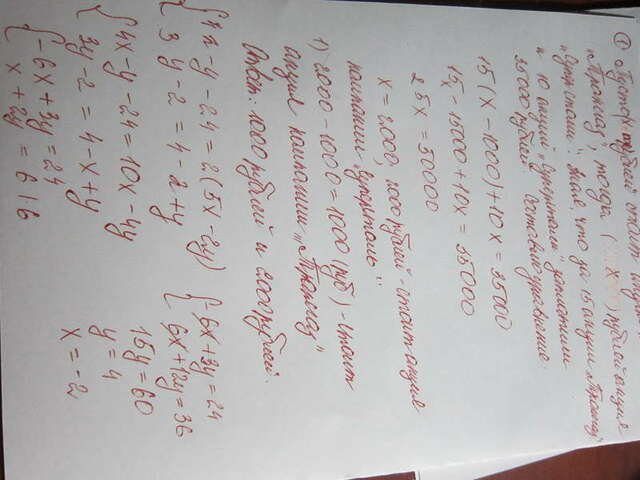 ① Пусть x рублей стоит акция
"Суперсталь", тогда (x-1000) рублей акция
"Промгаз". Зная, что за 15 акций "Промгаз"
и 10 акций "Суперсталь" заплатили
35000 рублей. Составлю уравнение.
15(x-1000)+10x=35000
15x-15000+10x=35000
25x=50000
x=2000, 2000 рублей - стоит акция
компании "Суперсталь"
1) 2000-1000=1000 (руб) - стоит
акция компании "Промгаз"
Ответ: 1000 рублей и 2000 рублей.
{ 4x-y-24=2(5x-2y)
3y-2=4-x+y
{ 4x-y-24=10x-4y
3y-2=4-x+y
{ -6x+3y=24
x+2y=6 |·6
{ -6x+3y=24
6x+12y=36
15y=60
y=4
x=-2